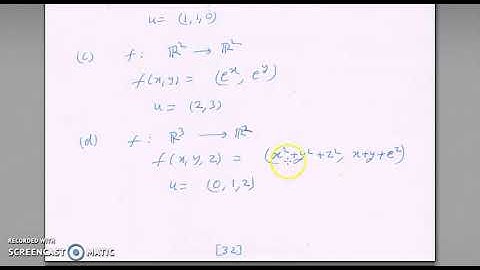 u = (1,1,0)
(c) f: ℝ² → ℝ²
f(x,y) = (eˣ, eʸ)
u = (2,3)
(d) f: ℝ³ → ℝ²
f(x,y,z) = (x²+y²+z², x+y+e²)
u = (0,1,2)
[32]
RECORDED WITH
SCREENCAST MATIC